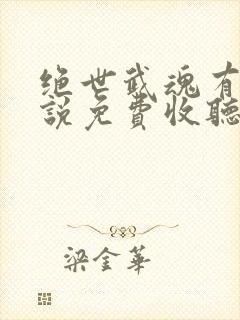 绝世武魂有
説免費收聽
梁金華